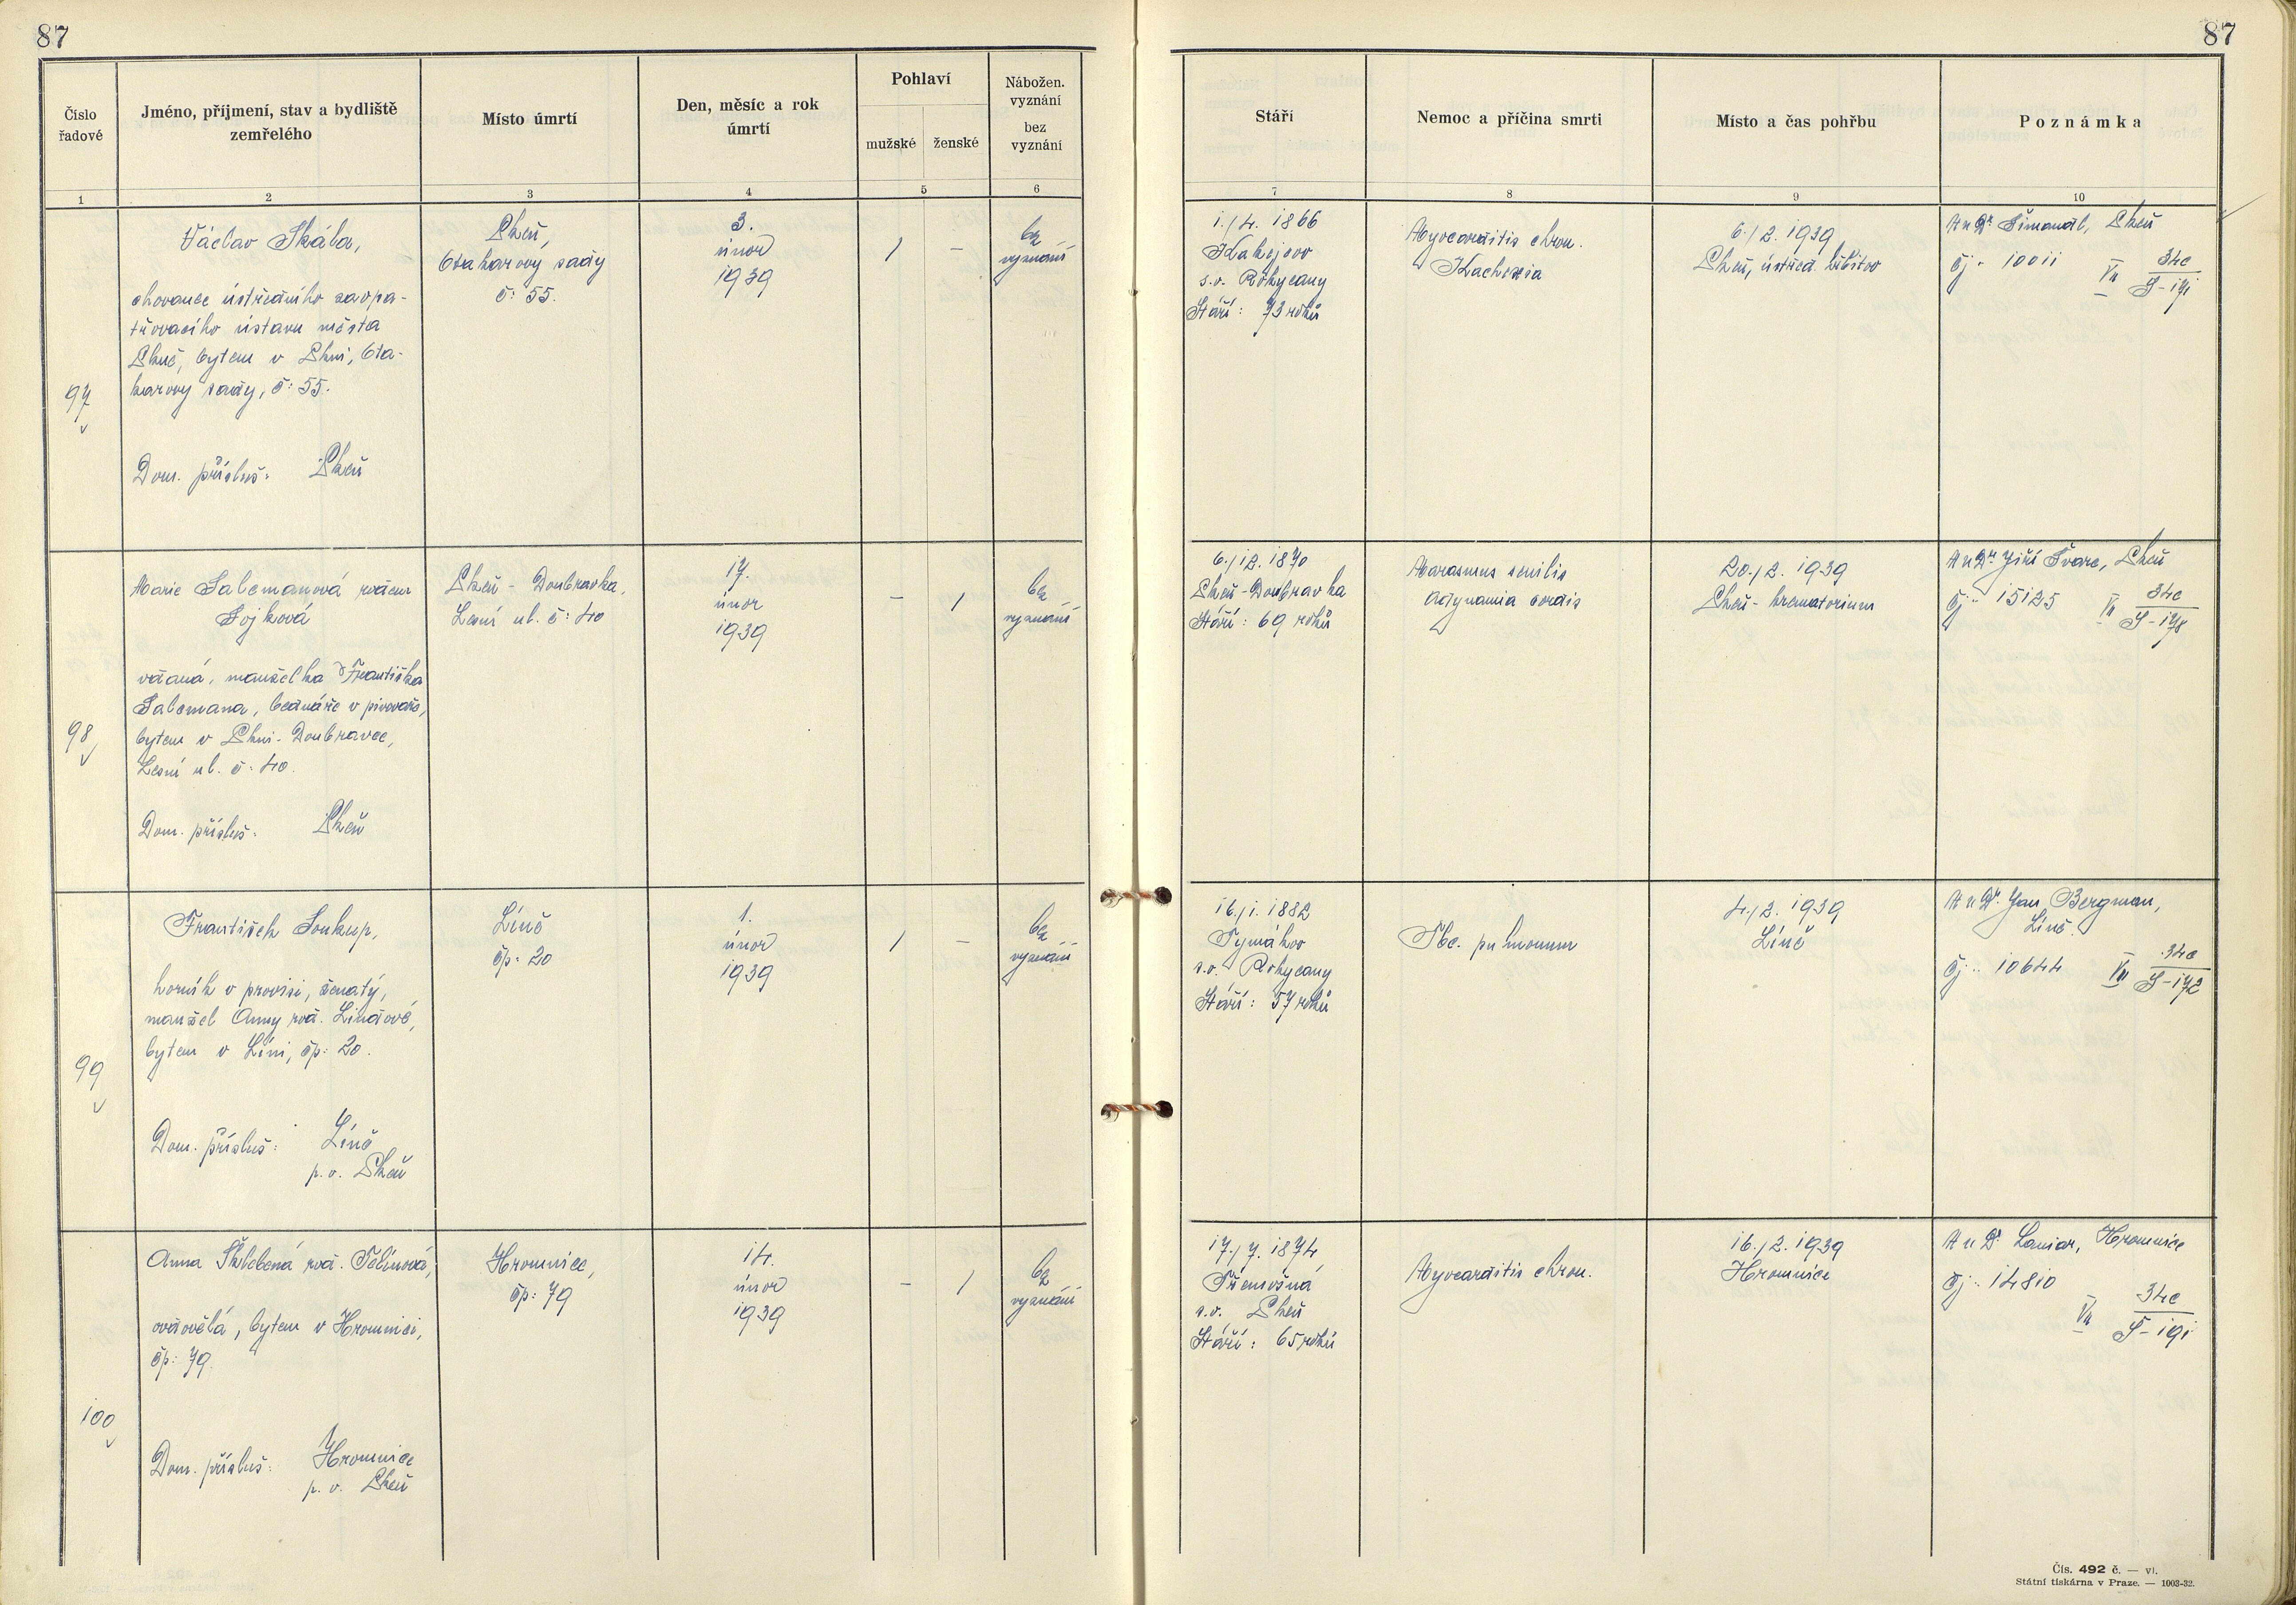 87
87
Číslo řadové
Jméno, příjmení, stav a bydliště zemřelého
Místo úmrtí
Den, měsíc a rok úmrtí
Pohlaví
mužské
ženské
Nábožen. vyznání
bez vyznání
Stáří
Nemoc a příčina smrti
Místo a čas pohřbu
Poznámka
1
2
3
4
5
6
7
8
9
10
97
Václav Skála,
chovanec ústředního zaopa-
třovacího ústavu města
Plzně, bytem v Plzni, Ota-
karovy sady, č: 55.
Dom. přísluš: Plzeň
Plzeň,
Otakarovy sady
č: 55.
3.
únor
1939
1
–
bez
vyznání
1./4. 1866
Kakejcov
s.o. Rokycany
Stáří: 73 roků
Myocarditis chron.
Kachexia
6./2. 1939
Plzeň, ústřed. hřbitov
MuDr Šimandl, Plzeň
čj: 10011
VII 34c
S-171
98
Marie Salcmanová rozen
Sojková
vdaná, manželka Františka
Salcmana, bednáře v pivovaře,
bytem v Plzni-Doubravce,
Lesní ul. č: 40.
Dom. přísluš: Plzeň
Plzeň - Doubravka,
Lesní ul. č: 40
17.
únor
1939
–
1
bez
vyznání
6./12. 1870
Plzeň-Doubravka
Stáří: 69 roků
Marasmus senilis
Adynamia cordis
20./2. 1939
Plzeň - krematorium
MuDr Jiří Švarc, Plzeň
čj: 15125
VII 34c
S-178
99
František Soukup,
horník v provisi, ženatý,
manžel Anny roz. Lindové,
bytem v Líni, čp: 20.
Dom. přísluš: Líně
p.o. Plzeň
Líně
čp: 20
1.
únor
1939
1
–
bez
vyznání
16./1. 1882
Tymákov
s.o. Rokycany
Stáří: 57 roků
Tbc. pulmonum
4./2. 1939
Líně
MuDr. Jan Bergman,
Líně.
čj: 10644
VII 34c
S-172
100
Anna Šlehoferová
ovdovělá, bytem v Hromnici,
čp: 79.
Dom. přísluš: Hromnice
p.o. Plzeň
Hromnice,
čp: 79
14.
únor
1939
–
1
bez
vyznání
17./7. 1874
Třemošná
s.o. Plzeň
Stáří: 65 roků
Myocarditis chron.
16./2. 1939
Hromnice
MuDr Laniar, Hromnice
čj: 14810
VII 34c
Š-191
Čís. 492 č. — vl.
Státní tiskárna v Praze. — 1003-32.